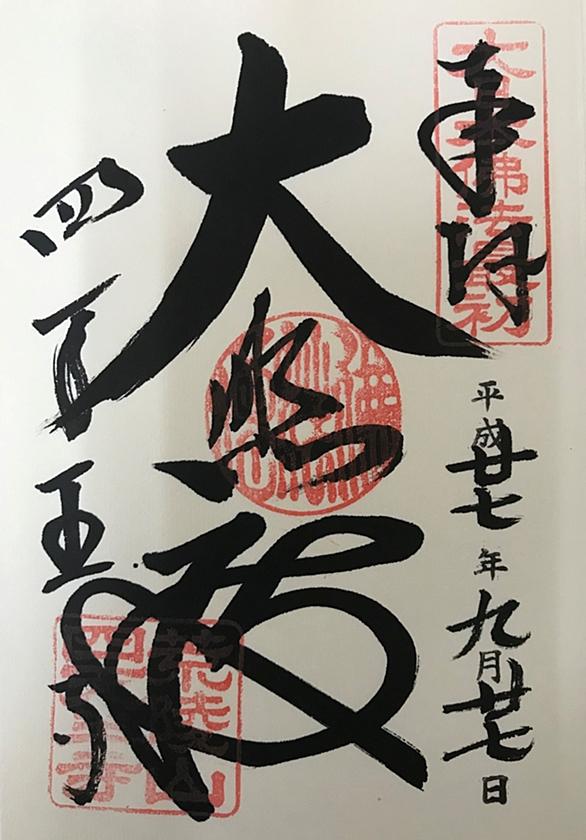 奉拝
大日本佛法最初
平成廿七年九月廿七日
大悲殿
四天王寺
荒陵山
四天王寺